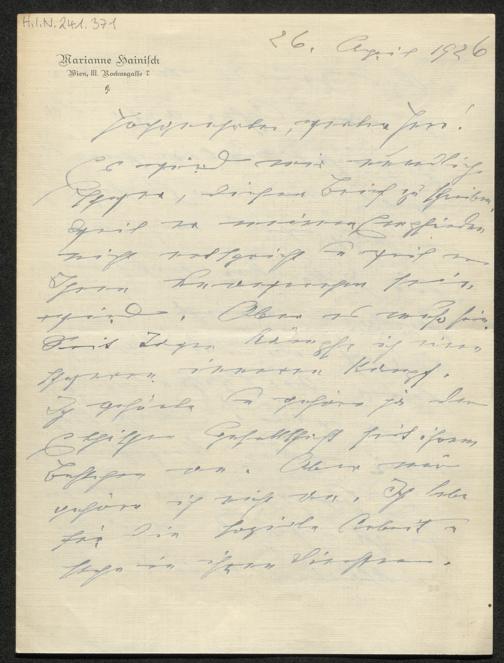 H.I.N. 241.371
26. April 1926
Marianne Hainisch
Wien, III. Rochusgasse 7
Hochgeehrter, lieber Herr!
Es wird mir unendlich
schwer, diesen Brief zu schreiben,
weil er meinem Empfinden
nicht entspricht u weil er
Ihnen unangenehm sein
wird. Aber es muß sein.
Seit Tagen kämpfe ich einen
schweren inneren Kampf.
Ich gehörte u gehöre ja der
Ethischen Gesellschaft seit ihrem
Bestehen an. Aber nur
gehöre ich nicht an. Ich lebe
für die soziale Arbeit u
stehe in ihren Diensten.